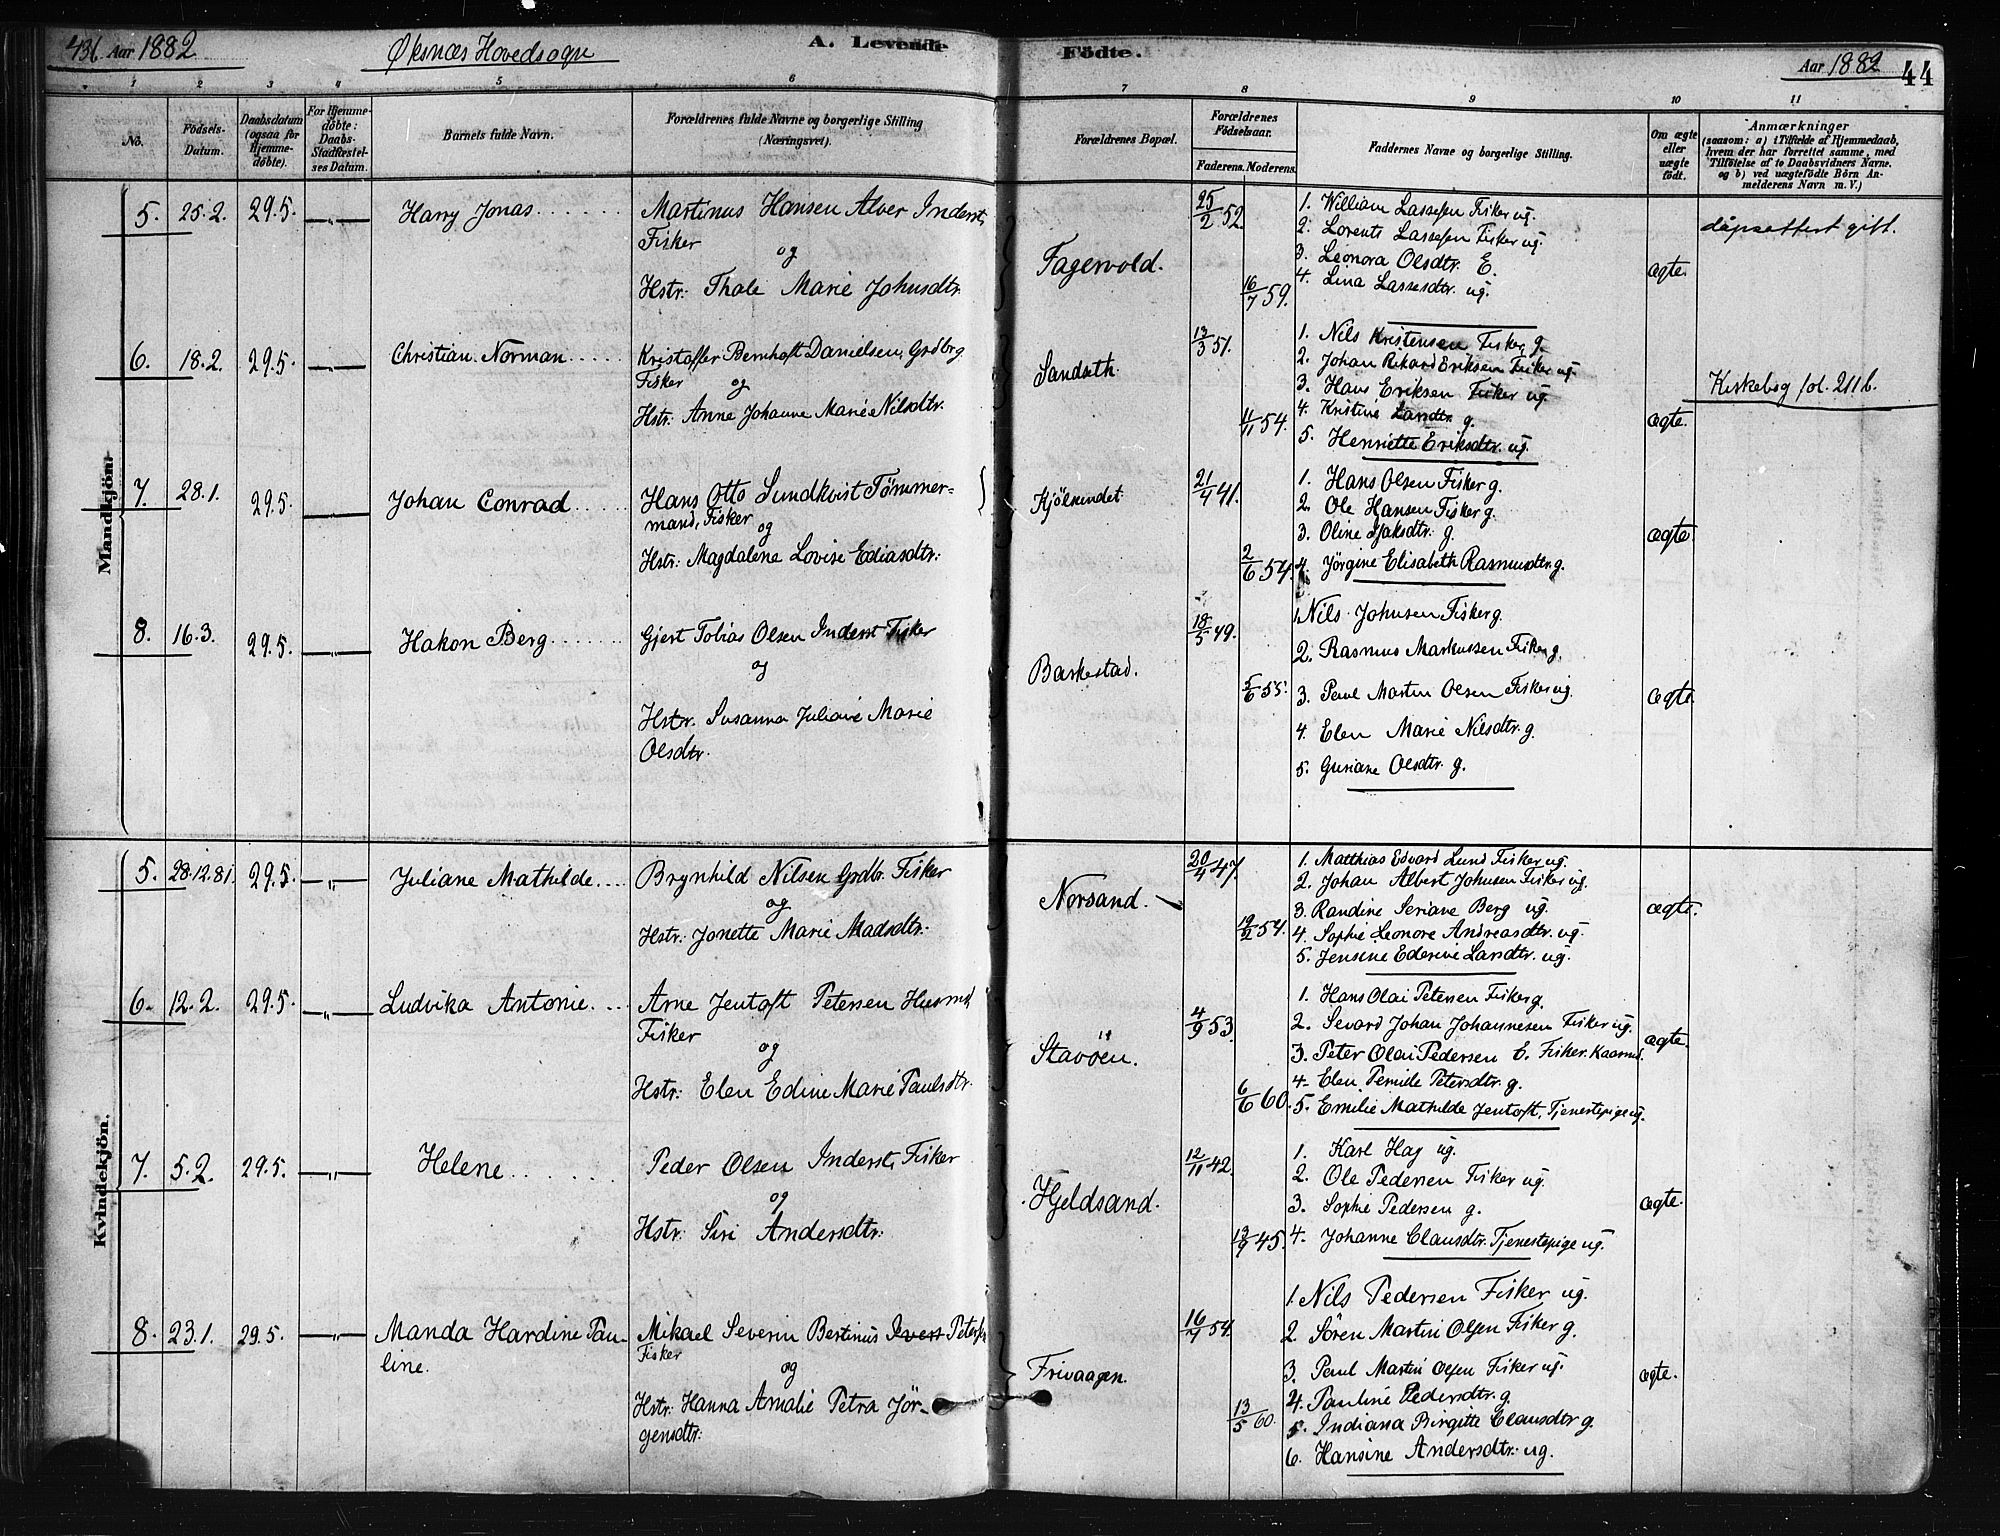 436. Aar 1882
Øksnæs Hovedsogn
A. Levende
Födte.
Aar 1882
44
1 2 3 4 5 6 7 8 9 10 11
No.
Födsels-
Datum.
Daabsdatum
(ogsaa for
Hjemme-
döbte).
For Hjemme-
döbte:
Daabs-
Stadfæstel-
ses Datum.
Barnets fulde Navn.
Forældrenes fulde Navne og borgerlige Stilling
(Næringsvei).
Forældrenes Bopæl.
Forældrenes
Födselsaar.
Faderens. Moderens.
Faddernes Navne og borgerlige Stilling.
Om ægte
eller
uægte
födt.
Anmærkninger
(saasom: a) i Tilfælde af Hjemmedaab,
hvem der har forrettet samme, med
Tilföielse af to Daabsvidners Navne,
og b) ved uægtefödte Börn An-
melderens Navn m. V.)
Mandkjön.
5. 25.2. 29.5. —„— Harry Jonas
Martinus Hansen Alver Inderst,
Fisker
og
Hstr: Thale Marie Johnsdtr.
Fagervold.
25/2 52.
16/7 59.
1. William Lassesen Fisker ug.
2. Lorents Lassesen Fisker ug.
3. Leonora Olsdtr. E.
4. Lina Lassesdtr. ug.
ægte.
dåpsattest gift.
6. 18.2. 29.5. —„— Christian Norman
Kristoffer Bernhoft Danielsen, Grdbrg.
Fisker
og
Hstr: Anne Johanne Marie Nilsdtr.
Sandseth.
13/3 51.
11/11 54.
1. Nils Kristensen Fisker, g.
2. Johan Rikard Eriksen Fisker ug.
3. Hans Eriksen Fisker ug.
4. Kristine Larsdtr. g.
5. Henriette Eriksdtr. ug.
ægte.
Kirkebog fol. 211b.
7. 28.1. 29.5. —„— Johan Conrad
Hans Otto Lundkvist Tömmer-
mand, Fisker
og
Hstr: Magdalene Lovise Ediasdtr:
Kjölsundet.
21/4 41.
2/6 54.
1. Hans Olsen Fisker g.
2. Ole Hansen Fisker g.
3. Oline Isaksdtr. g.
4. Jörgine Elisabeth Rasmusdtr. g.
ægte
8. 16.3. 29.5. —„— Hakon Berg
Gjert Tobias Olsen Inderst Fisker
og
Hstr. Susanna Juliane Marie
Olsdtr.
Barkestad.
18/5 49.
5/6 55.
1. Nils Johnsen Fisker g.
2. Rasmus Markussen Fisker g.
3. Paul Martin Olsen Fisker ug.
4. Elen Marie Nilsdtr. g.
5. Guriane Olsdtr. g.
ægte.
Kvindekjön.
5. 28.12.81. 29.5. —„— Juliane Mathilde
Brynhild Nilsen Grdbr. Fisker
og
Hstr: Jonette Marie Madsdtr.
Norsand.
20/4 47.
19/2 54.
1. Matthias Edvard Lund Fisker ug.
2. Johan Albert Johnsen Fisker ug.
3. Randine Seriane Berg ug.
4. Sophie Leonore Andreasdtr. ug.
5. Jensine Ederine Larsdtr. ug.
ægte.
6. 12.2. 29.5. —„— Ludvika Antonie
Arne Jentoft Petersen Husmd,
Fisker
og
Hstr: Elen Edine Marie Paulsdtr.
Stavöen.
4/9 53.
6/6 60.
1. Hans Olai Petersen Fisker g.
2. Sevard Johan Johannesen Fisker ug.
3. Peter Olai Pedersen E. Fisker. Kaarmd.
4. Elen Pernide Petersdtr. g.
5. Emilie Mathilde Jentoft, Tjenestepige ug.
ægte.
7. 5.2. 29.5. —„— Helene
Peder Olsen Inderst, Fisker
og
Hstr: Siri Andersdtr:
Hjeldsand.
12/11 42.
13/9 45.
1. Karl Hag ug.
2. Ole Pedersen Fisker ug.
3. Sophie Pedersen g.
4. Johanne Clausdtr. Tjenestepige ug.
ægte.
8. 23.1. 29.5. —„— Manda Hardine Pau-
line.
Mikael Severin Bertinus Petersen
Fisker
og
Hstr: Hanna Amalie Petra Jör-
gensdtr:
Frivaagen.
16/7 54.
13/5 60.
1. Nils Pedersen Fisker ug.
2. Sören Martin Olsen Fisker g.
3. Paul Martin Olsen Fisker ug.
4. Pauline Pedersdtr. g.
5. Indiana Birgitte Clausdtr g.
6. Hansine Andersdtr. ug.
ægte.